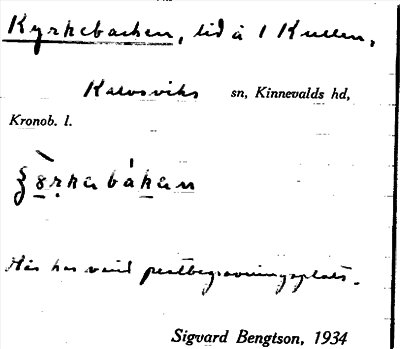 Kyrkebacken, tid å 1 Kullen,
Kalvsviks sn, Kinnevalds hd,
Kronob. l.
Här har varit pestbegravningsplats.
Sigvard Bengtson, 1934